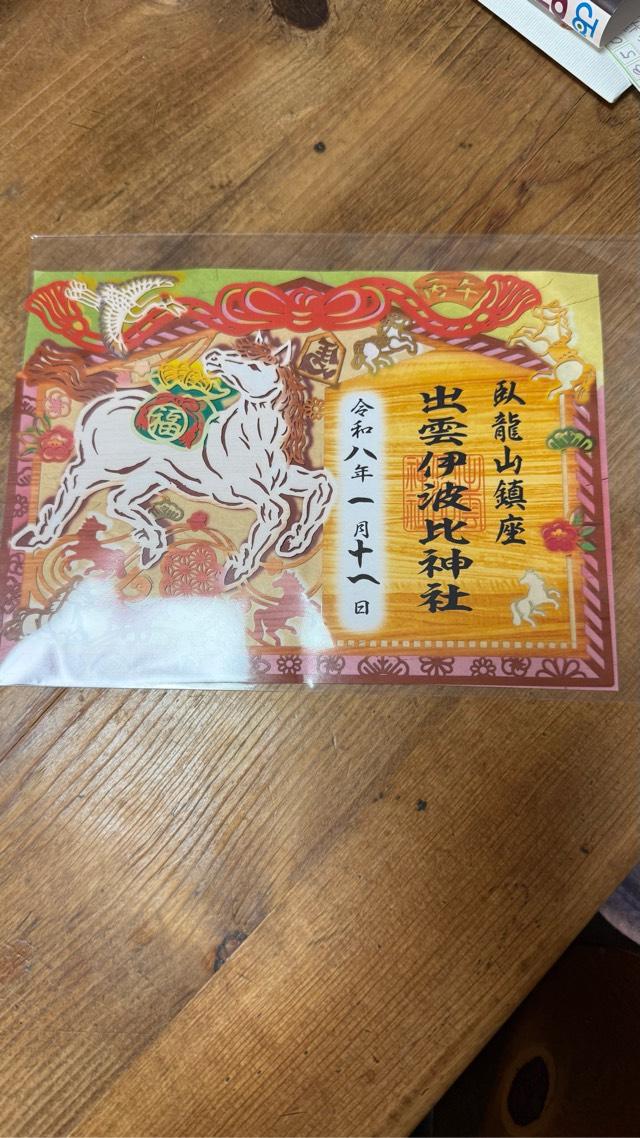 臥龍山鎮座
出雲伊波比神社
令和八年一月十一日
丙午
福